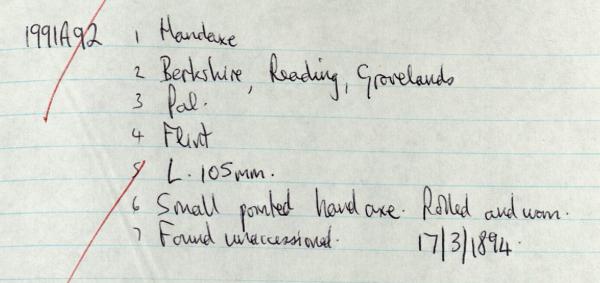 1991A92 1 Handaxe
2 Berkshire, Reading, Grovelands
3 Pal.
4 Flint
5 L. 105mm.
6 Small pointed hand axe. Rolled and worn.
7 Found unaccessioned. 17/3/1894.